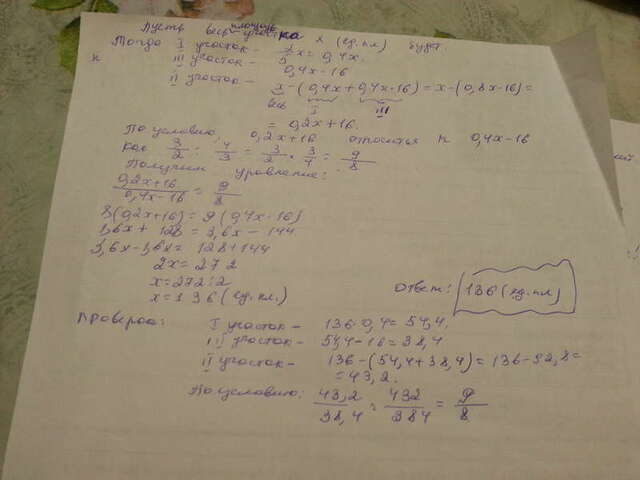 Пусть вся площадь x (ед.пл) будет.
Тогда I участок – 2/5 x = 0,4x
III участок – 0,4x-16
II участок – x-(0,4x+0,4x-16) = x-(0,8x-16) =
I III
= 0,2x+16.
По условию, 0,2x+16 относится к 0,4x-16
как 3/2 : 4/3 = 3/2 · 3/4 = 9/8
Получим уравнение:
0,2x+16 / 0,4x-16 = 9/8
8(0,2x+16) = 9(0,4x-16)
1,6x+128 = 3,6x-144
3,6x-1,6x = 128+144
2x = 272
x = 272:2
x = 136 (ед.пл)
Ответ: 136 (ед.пл)
Проверка: I участок – 136·0,4 = 54,4
III участок – 54,4-16 = 38,4
II участок – 136-(54,4+38,4) = 136-92,8 =
= 43,2.
По условию: 43,2 / 38,4 = 432 / 384 = 9/8